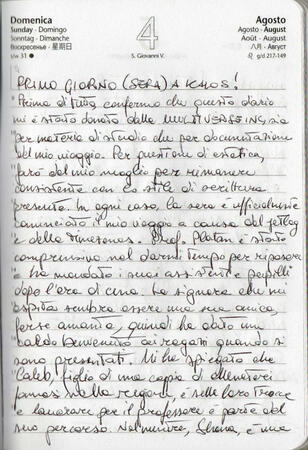 Domenica
Sunday - Domingo
Sonntag - Dimanche
Воскресенье - 星期日
s/w 31
4
S. Giovanni V.
Agosto
Agosto - August
Août - August
август - 八月
g/d 217-149
PRIMO GIORNO (SERA) A KALOS!
Prima di tutto confermo che questo diario
mi è stato donato dalla sia
per materia di studio che per documentazione
del mio viaggio. Per questioni di estetica,
farò del mio meglio per rimanere
consistente con lo stile di scrittura
presente. In ogni caso, la sera è ufficialmente
cominciato il mio viaggio a causa del jetlag
e della Prof. Platan è stato
comprensivo nel darmi tempo per riposare
e ha mandato i suoi assistenti e pupilli
dopo l'ora di cena. La signora che mi
ospita sembra essere una sua amica,
forse amante, quindi ha dato un
caldo benvenuto ai ragazzi quando si
sono presentati. Mi ha spiegato che
Caleb, figlio di una copia di allenatori
famosi nella regione, è sulle loro tracce
e lavorare per il professore è parte del
suo percorso. Serena, è una